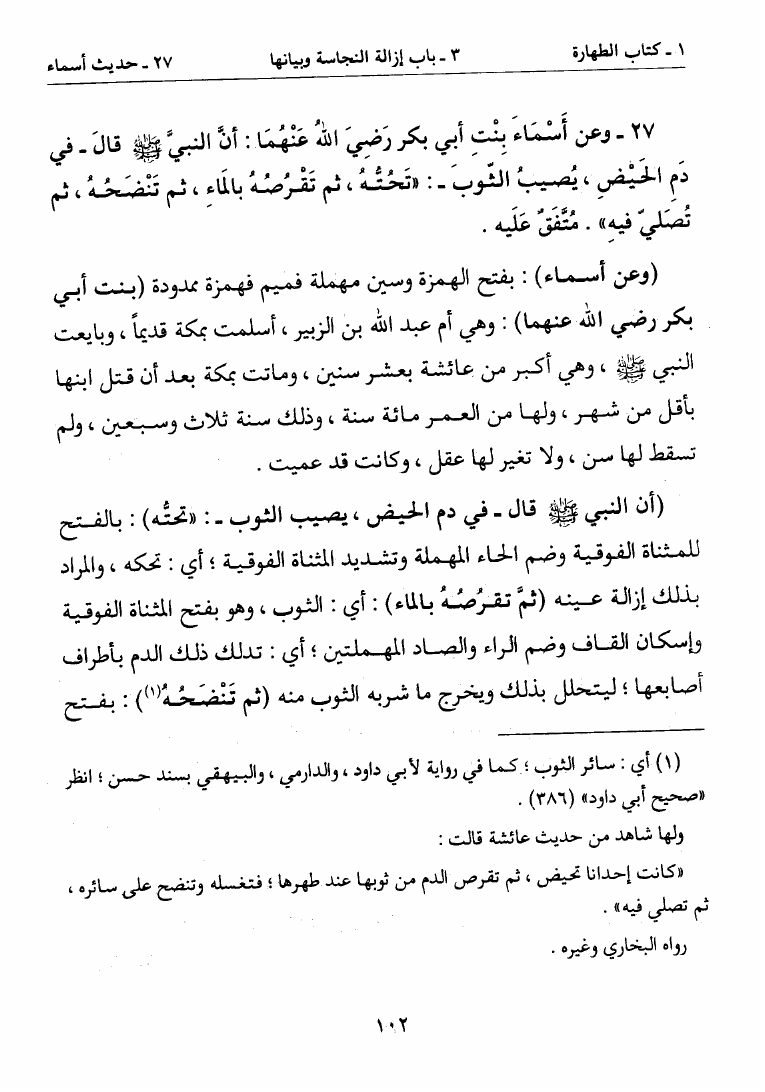 ١ ـ كتاب الطهارة ٣ ـ باب إزالة النجاسة وبيانها ٢٧ ـ حديث أسماء
٢٧ ـ وعن أَسْمَاءَ بِنْتِ أبي بكر رَضِيَ اللهُ عَنْهُمَا : أنَّ النبيَّ ﷺ قالَ ـ في
دَمِ الحَيْضِ ، يُصيبُ الثّوبَ ـ : «تَحُتُّهُ ، ثم تَقْرُصُهُ بالمَاء ، ثم تَنْضَحُهُ ، ثم
تُصَليّ فيه» . مُتَّفَقٌ عَلَيه .
(وعن أسماء) : بفتح الهمزة وسين مهملة فميم فهمزة ممدودة (بنت أبي
بكر رضي الله عنهما) : وهي أم عبد الله بن الزبير ، أسلمت بمكة قديماً ، وبايعت
النبي ﷺ ، وهي أكبر من عائشة بعشر سنين ، وماتت بمكة بعد أن قتل ابنها
بأقل من شهر ، ولها من العمر مائة سنة ، وذلك سنة ثلاث وسبعين ، ولم
تسقط لها سن ، ولا تغير لها عقل ، وكانت قد عميت .
(أن النبي ﷺ قال ـ في دم الحيض ، يصيب الثوب ـ : «تحتُّه) : بالفتح
للمثناة الفوقية وضم الحاء المهملة وتشديد المثناة الفوقية ؛ أي : تحكه ، والمراد
بذلك إزالة عينه (ثمَّ تقرُصُهُ بالماء) : أي : الثوب ، وهو بفتح المثناة الفوقية
وإسكان القاف وضم الراء والصاد المهملتين ؛ أي : تدلك ذلك الدم بأطراف
أصابعها ؛ ليتحلل بذلك ويخرج ما شربه الثوب منه (ثم تَنْضَحُهُ(١)) : بفتح
(١) أي : سائر الثوب ؛ كما في رواية لأبي داود ، والدارمي ، والبيهقي بسند حسن ؛ انظر
«صحيح أبي داود» (٣٨٦) .
ولها شاهد من حديث عائشة قالت :
«كانت إحدانا تحيض ، ثم تقرص الدم من ثوبها عند طهرها ؛ فتغسله وتنضح على سائره ،
ثم تصلي فيه» .
رواه البخاري وغيره .
١٠٢